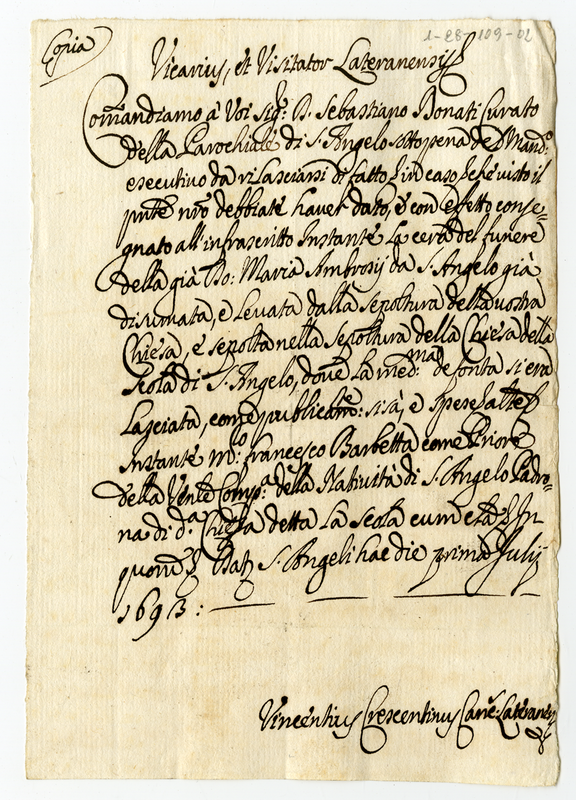 1-28-109-02
Copia
Vicarius, et Visitator Lateranensis
Comandiamo à Voi Sig.r D. Sebastiano Bonati Curato
della Parochiale di S. Angelo sotto pena del Mand.o
esecutivo da rilasciarsi di fatto in caso che visto il
pnte nro debbiate haver dato, e con effetto conse=
gnato all'infrascritto Instante la cera del funere
della già Maria Ambrosij da S. Angelo già
disumata, e levata dalla sepoltura della vostra
Chiesa, e sepolta nella sepoltura della Chiesa della
Scola di S. Angelo, dove la med.ma defonta si era
lasciata, come publicam.e si sà, e spese
Instante m.o Francesco Barbetta come Priore
della Vente Comp.a della Natività di S. Angelo Padro=
na di d.a Chiesa detta la Scola cum In
quorum S. Angeli hac die prima Julij
1693:
Vincentius Crescentinus Can.e Lateranen